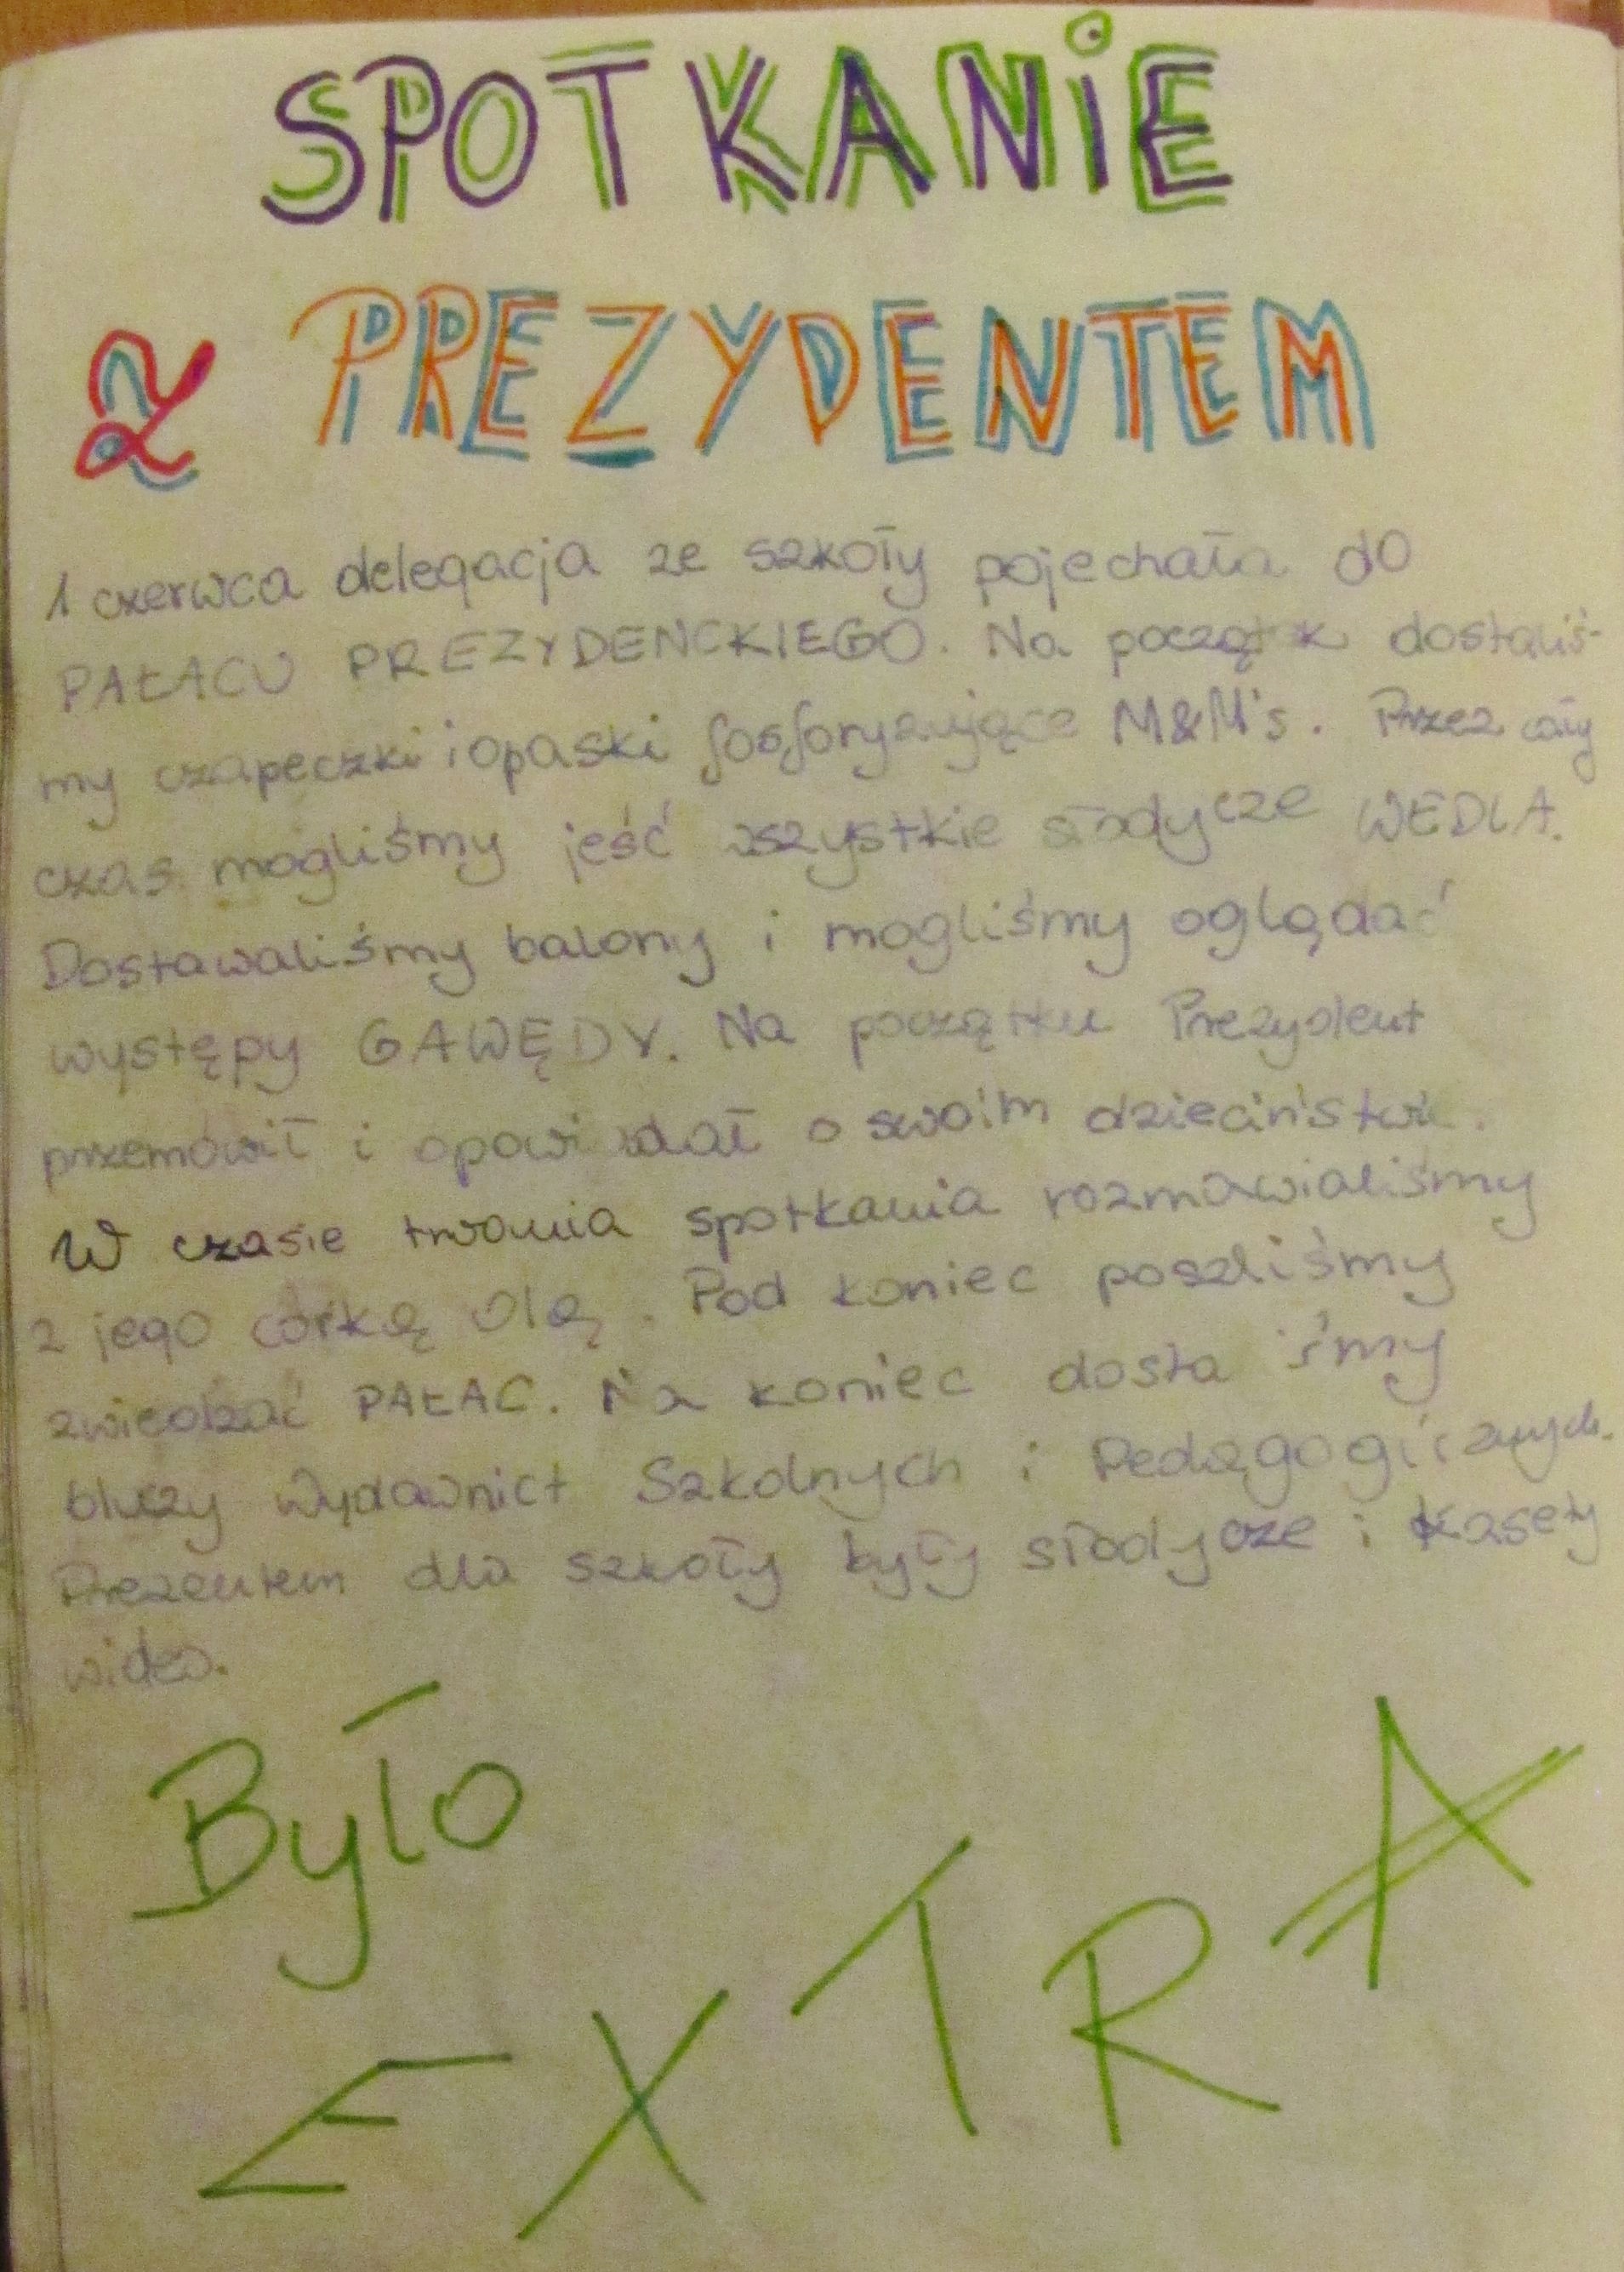 SPOTKANiE
Z PREZYDENTEM
1 czerwca delegacja ze szkoły pojechała do
PAŁACU PREZYDENCKIEGO. Na początek dostaliś-
my czapeczki i opaski fosforyzujące M&M's. Przez cały
czas mogliśmy jeść wszystkie słodycze WEDLA.
Dostawaliśmy balony i mogliśmy oglądać
występy GAWĘDY. Na początku Prezydent
przemówił i opowiadał o swoim dzieciństwie.
W czasie trwania spotkania rozmawialiśmy
z jego córką Olą. Pod koniec poszliśmy
zwiedzać PAŁAC. Na koniec dosta iśmy
bluzy Wydawnict Szkolnych i Pedagogicznych.
Prezentem dla szkoły były słodycze i kasety
wideo.
Było
EXTRA